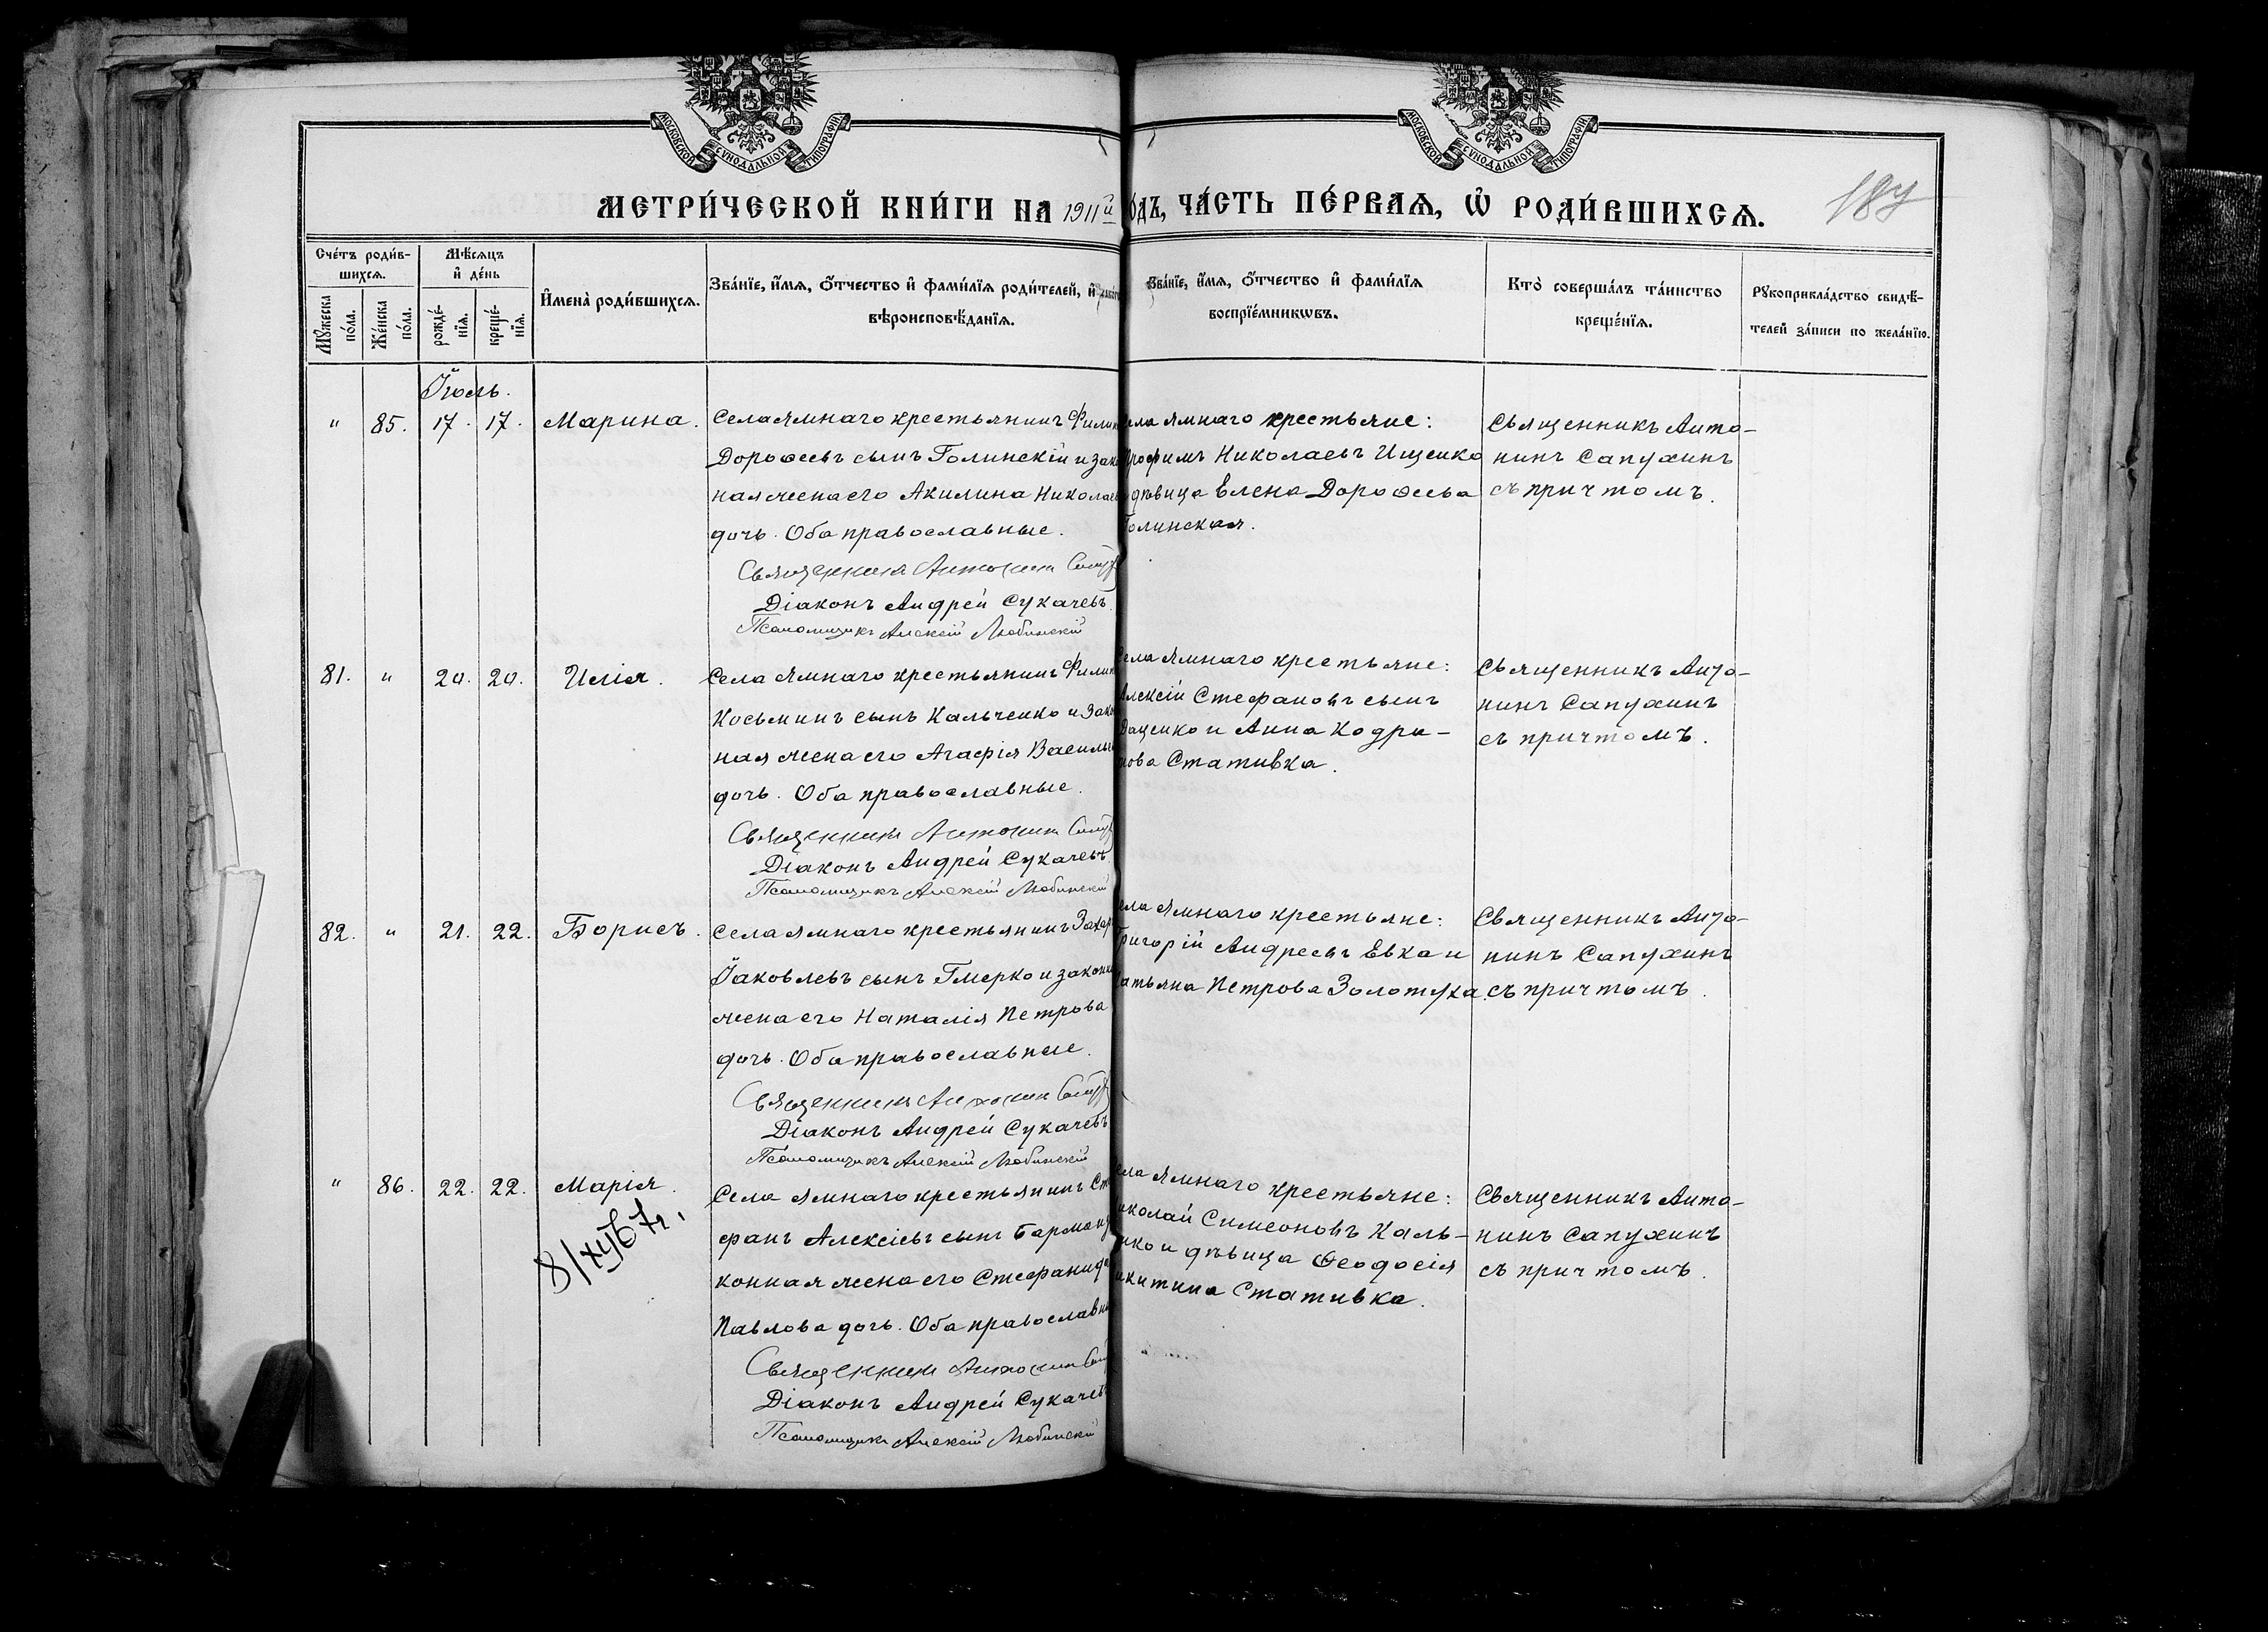 МОСКОВСКОЙ СУНОДАЛЬНОЙ ТИПОГРАФІИ
МОСКОВСКОЙ СУНОДАЛЬНОЙ ТИПОГРАФІИ
МЕТРИ́ЧЕСКОЙ КНИ́ГИ НА 1911й
ОДЪ, ЧА́СТЬ ПЕ́РВАѦ, Ѡ РОДИ́ВШИХСѦ.
Сче́тъ роди́в-
шихсѧ.
Мꙋжеска по́ла.
Же́нска по́ла.
Мѣсѧцъ
и де́нь
рожде́-
нїѧ.
креще́-
нїѧ.
Имена̀ роди́вшихсѧ.
Зва́нїе, и́мѧ, о́тчество и фами́лїѧ роди́телей, и
вѣроисповѣ́данїѧ.
Зва́нїе, и́мѧ, о́тчество и фами́лїѧ
воспрїе́мникѡвъ.
Кто̀ соверша́лъ та́инство
креще́нїѧ.
Рꙋкоприкла́дство свидѣ́-
телей за́писи по жела́нїю.
Іюль.
" 85. 17. 17. Марина.
Села Ямнаго крестьянинъ Филип
Дороѳеевъ сынъ Голинскій и зак
ная жена его Акилина Николаев
дочь. Оба православные.
Священникъ Антонинъ
Діаконъ Андрей Сукачевъ.
Псаломщикъ Алексій Любинскій
ела Ямнаго крестьяне:
рофимъ Николаевъ Ищенко
дѣвица Елена Дороѳеева
Голинская.
Священникъ Анто-
нинъ Сапухинъ
съ причтомъ.
81. " 20. 20. Илія.
Села Ямнаго крестьянинъ Филип
Косьминъ сынъ Кальченко и зако
ная жена его Агафія Василье
дочь. Оба православные.
Священникъ Антонинъ
Діаконъ Андрей Сукачевъ.
Псаломщикъ Алексій Любинскій
Села Ямнаго крестьяне:
Алексій Стефановъ сынъ
Даценко и Анна Кодра-
това Стативка.
Священникъ Анто-
нинъ Сапухинъ
съ причтомъ.
82. " 21. 22. Борисъ.
Села Ямнаго крестьянинъ Захар
Іаковлевъ сынъ Гмерко и законн
жена его Наталія Петрова
дочь. Оба православные.
Священникъ Антонинъ
Діаконъ Андрей Сукачевъ
Псаломщикъ Алексій Любинскій
ела Ямнаго крестьяне:
Григорій Андреевъ Евка и
атьяна Петрова Золотуха.
Священникъ Анто-
нинъ Сапухинъ
съ причтомъ.
" 86. 22. 22. Марія.
Села Ямнаго крестьянинъ Сте
фанъ Алексіевъ сынъ
конная жена его Стефанида
Павлова дочь. Оба православн
Священникъ Антонинъ
Діаконъ Андрей Сукачевъ
Псаломщикъ Алексій Любинскій
ела Ямнаго крестьяне:
иколай Симеоновъ Каль-
нко и дѣвица Ѳеодосія
икитина Стативка.
Священникъ Анто-
нинъ Сапухинъ
съ причтомъ.